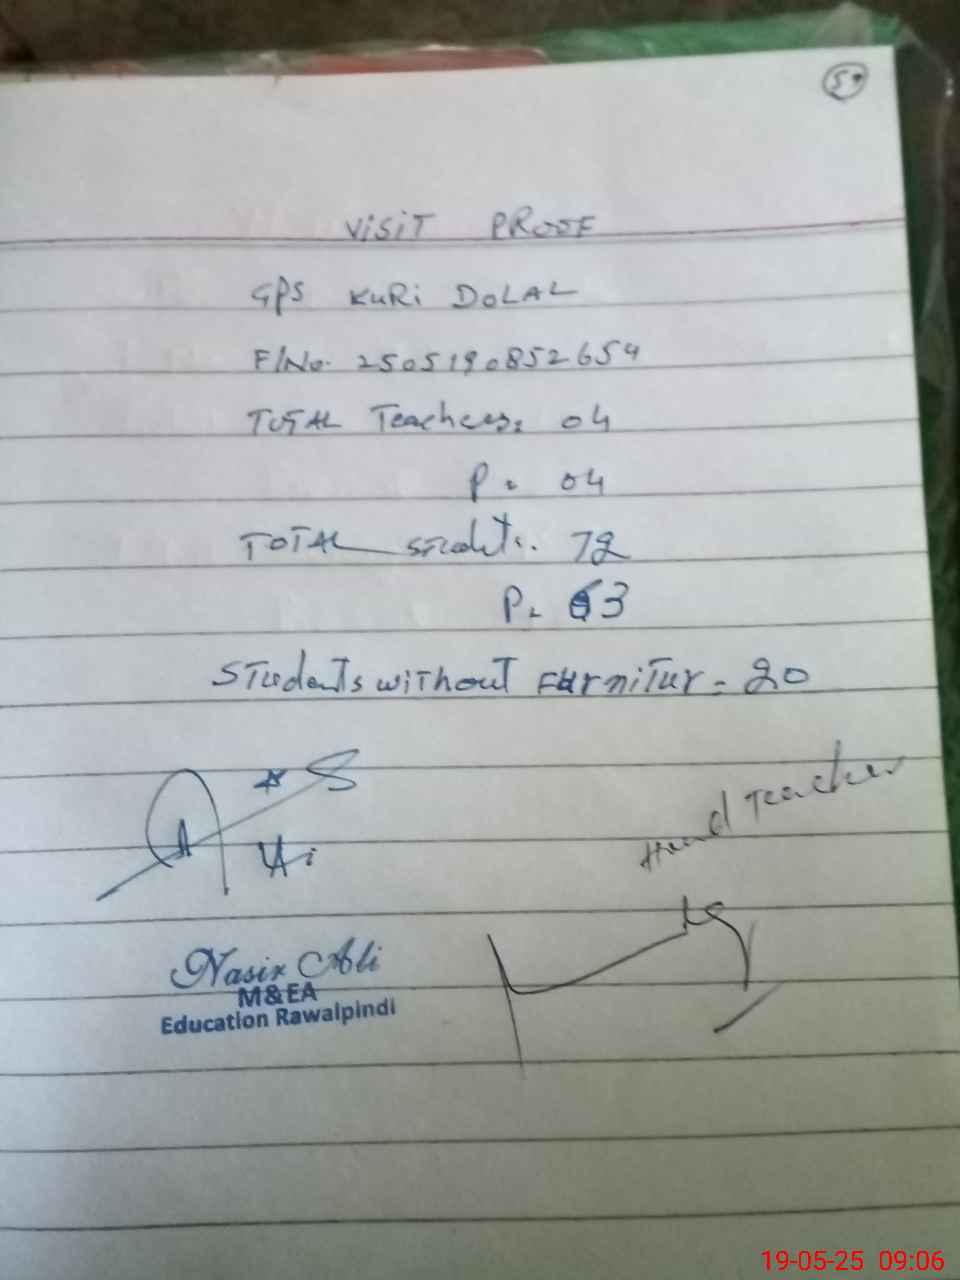 59
VISIT PROOF
GPS KURI DOLAL
F/No. 2505190852654
TOTAL Teachers: 04
P. 04
TOTAL students. 72
P. 63
Students without Furnitur - 20
Head Teacher
Nasir Ali
M&EA
Education Rawalpindi
19-05-25 09:06